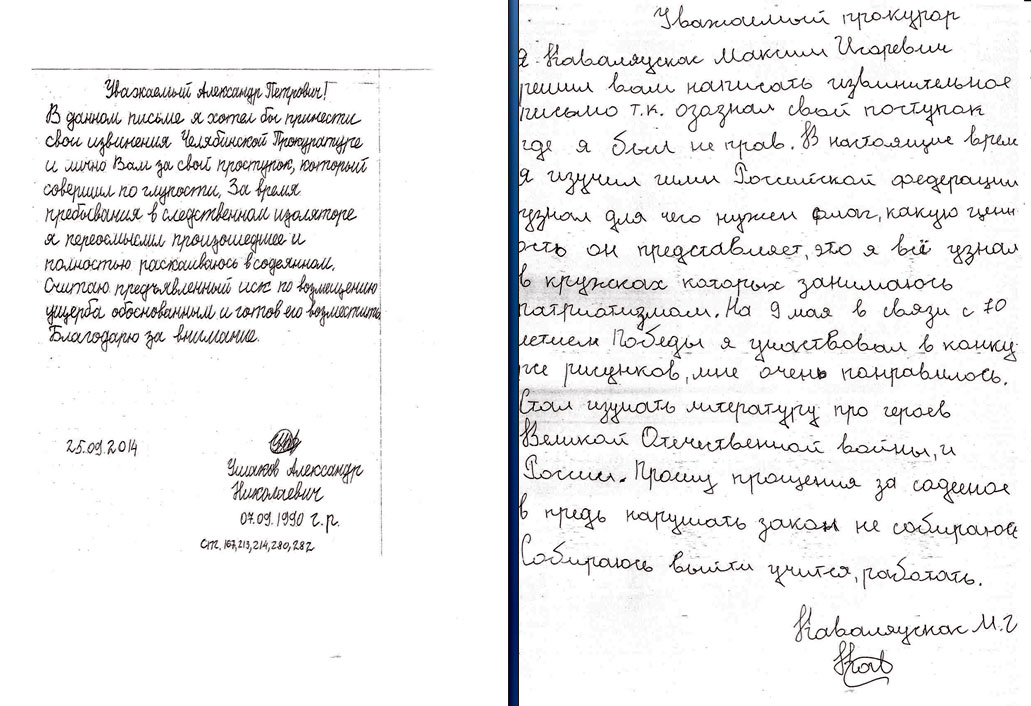 Уважаемый Александр Петрович!
В данном письме я хотел бы принести
свои извинения Челябинской Прокуратуре
и лично Вам за свой проступок, который
совершил по глупости. За время
пребывания в следственном изоляторе
я переосмыслил произошедшее и
полностью раскаиваюсь в содеянном.
Считаю предъявленный иск по возмещению
ущерба обоснованным и готов его возместить
Благодарю за внимание.
25.09.2014
Ушаков Александр
Николаевич
07.09.1990 г.р.
ст. 167,213,214,280,282
Уважаемый прокурор
я Каваляускас Максим Игоревич
решил вам написать извинительное
письмо т.к. озознал свой поступок
где я был не прав. В настоящие врем
я изучил гимн Российской федерации
узнал для чего нужен флаг, какую ценн
ость он представляет, это я всё узнал
в кружках которых занимаюсь
патриатизмом. На 9 мая в связи с 70
летием Победы я участвовал в конку
рсе рисунков, мне очень понравилось.
Стал изучать литературу про героев
Великой Отечественной войны, и
России. Прошу прощения за содееное
в предь нарушать закон не собираюсь
Собираюсь выйти учится, работать.
Каваляускас М.И